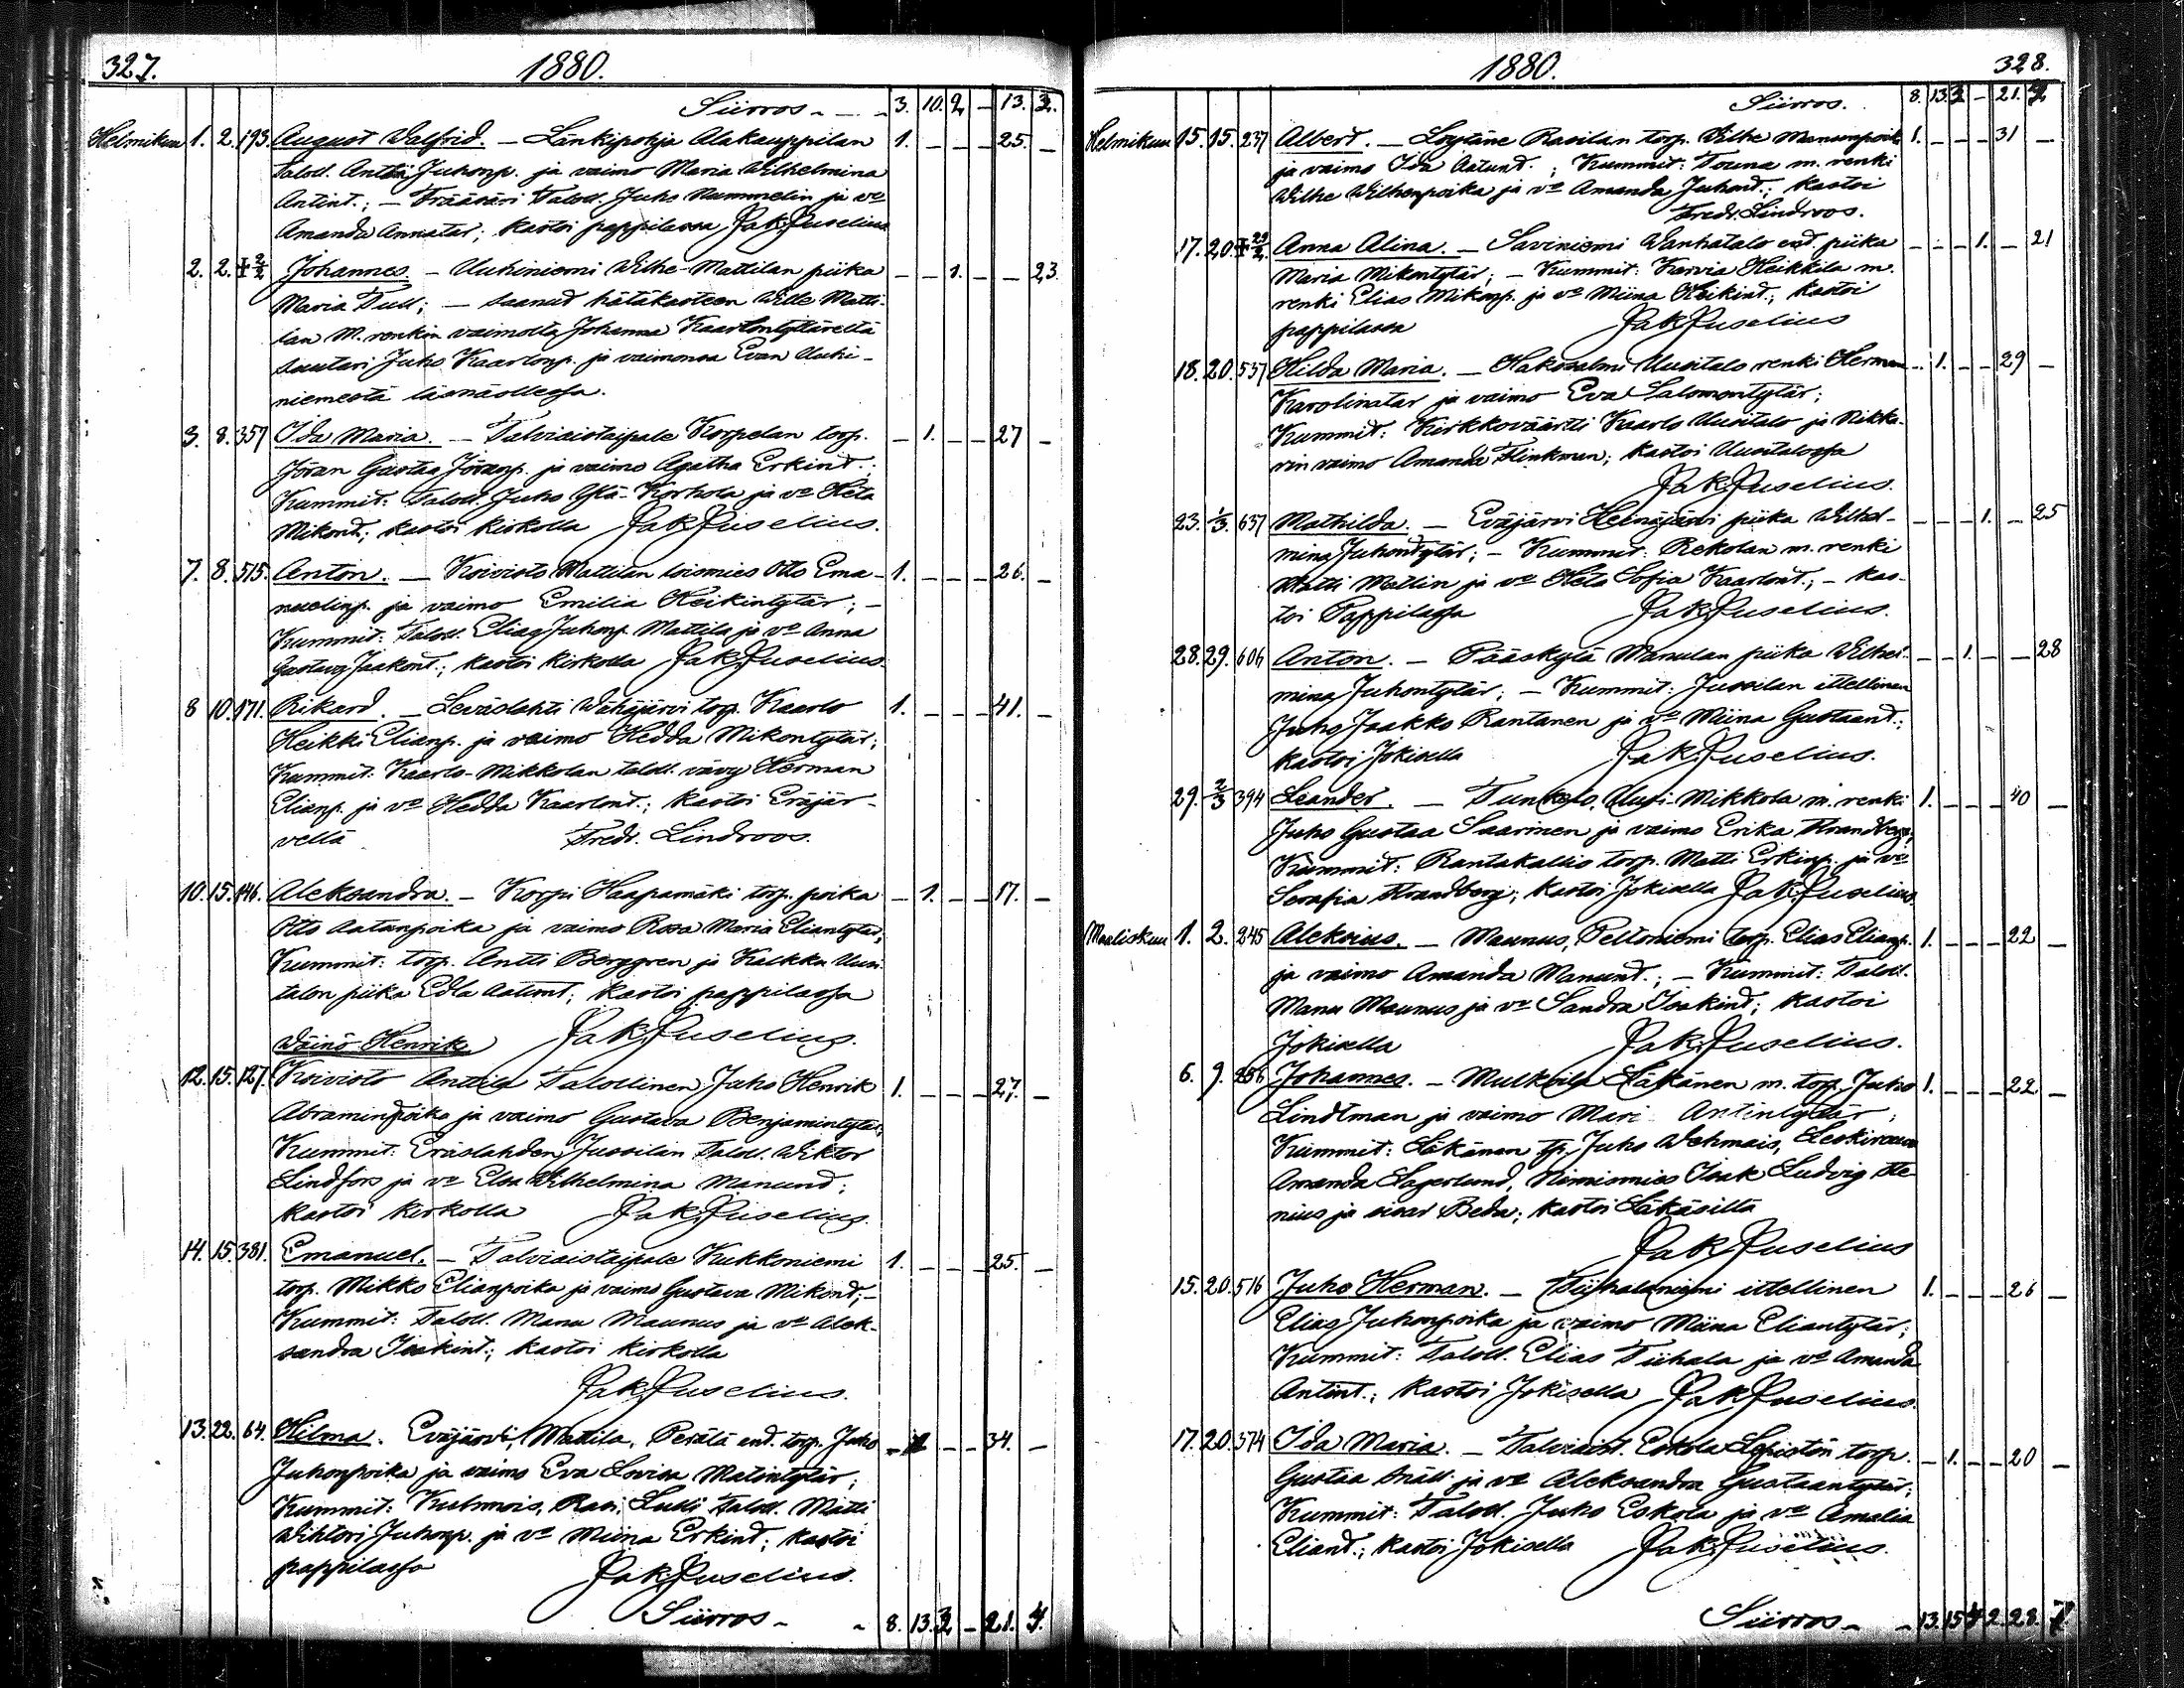 327. 1880.
Siirros - - - 3. 10. 2. - 13. 3.
Helmikuu 1. 2. 193. August Walfrid. - Länkipohja Alakauppilan 1. - - - 25. -
Taloll. Antti Juhonp. ja vaimo Maria Wilhelmina
Antint.; - Taloll. Juho Nummelin ja vo
Amanda Annatar; kastoi pappilassa Jak. Juselius
2. 2. Johannes. - Uuhiniemi Wilhe-Mattilan piika - - 1. - - 23.
Maria Tull; - saanut hätäkasteen Wille Matti-
lan m. renkin vaimolta Johanna Kaarlontyttäreltä
suutari Juho Kaarlonp. ja vaimonsa Evan Uuhi-
niemestä läsnäollessa.
3. 8. 357 Ida Maria. - Talviaistaipale Korpelan torp. - 1. - - 27 -
Jöran Gustaa Jöranp. ja vaimo Agatha Erkint.;
Kummit: Taloll. Juho Ylä-Korhola ja vo Heta
Mikont.; kastoi kirkolla Jak. Juselius.
7. 8. 515. Anton. - Koivisto Mattilan loismies Otto Ema- 1. - - - 26. -
nuelinp. ja vaimo Emilia Heikintytär; -
Kummit: Taloll. Elias Juhonp. Mattila ja vo Anna
Gustava Jaakont.; kastoi kirkolla Jak. Juselius.
8 10. 171. Rikard. - Leväslahti Wehäjärvi torp. Kaarlo 1. - - - 41. -
Heikki Elianp. ja vaimo Hedda Mikontytär;
Kummit: Kaarlo-Mikkolan taloll. vävy Herman
Elianp. ja vo Hedda Kaarlont.; kastoi Eräjär-
vellä Fredr. Lindroos.
10. 15. 146. Aleksandra. - Korpi Haapamäki torp. poika - 1. - - 17. -
Otto Aatanpoika ja vaimo Rosa Maria Eliantytär;
Kummit: torp. Antti Berggren ja Kalkku Uusi-
talon piika Edla Aatamt.; kastoi pappilassa
Jak. Juselius.
Wäinö Henrik
12. 15. 127. Koivisto Anttila Talollinen Juho Henrik 1. - - - 27. -
Abraminpoika ja vaimo Gustava Benjamintytär;
Kummit: Eräslahden Jussilan Taloll. Wiktor
Lindfors ja vo Elsa Wilhelmina Manund;
kastoi kirkolla Jak. Juselius.
14. 15. 381. Emanuel. - Talviaistaipale Kukkoniemi 1. - - - 25. -
torp. Mikko Elianpoika ja vaimo Gustava Mikont; -
Kummit: Taloll. Manu Maunus ja vo Alek-
sandra Isakint.; kastoi kirkolla
Jak. Juselius.
13. 22. 64. Hilma. Eväjärvi, Mattila, Perälä ent. torp. Juho - 1 - - 34. -
Juhonpoika ja vaimo Eva Lovisa Matintytär;
Kummit: Kuhmois, Taloll. Matti
Wihtori Juhonp. ja vo Miina Erkint.; kastoi
pappilassa Jak. Juselius.
Siirros - - 8. 13. 3 - 21. 4.
1880. 328.
Siirros. 8. 13. 3 - 21. 4
Helmikuu 15. 15. 237 Albert. - Löytäne Rasilan torp. Wilhe Manunpoik 1. - - - 31 -
ja vaimo Ida Aatunt.; Kummit: m. renki
Wilhe Wilhenpoika ja vo Amanda Juhont.; kastoi
Fredr. Lindroos.
17. 20. Anna Alina. - Saviniemi Wanhatalo ent. piika - - - 1. - 21
Maria Mikontytär; - Kummit: Karvia Heikkila m.
renki Elias Mikonp. ja vo Miina Heikint.; kastoi
pappilassa Jak. Juselius
18. 20. 537 Hilda Maria. - Hakosalmi Uusitalo renki Herman - 1. - - 29 -
Karolinatar ja vaimo Eva Salomontytär;
Kummit: Kirkkoväärtti Kaarlo Uusitalo ja Nikka-
rin vaimo Amanda Flinkman; kastoi Uusitalossa
Jak. Juselius.
23. 1/3. 637 Mathilda. - Eväjärvi Heinäjärvi piika Wilhel- - - - 1. - 25
mina Juhontytär; - Kummit: Rekolan m. renki
Matti Matlin ja vo Heta Sofia Kaarlont.; - kas-
toi Pappilassa Jak. Juselius.
28. 29. 606 Anton. - Pääskylä Manulan piika Wilhel- - - 1. - - 28
mina Juhontytär; - Kummit: Jussilan ittellinen
Juho Jaakko Rantanen ja vo Miina Gustaant.;
kastoi Jokisella Jak. Juselius.
29. 2/3 394 Leander. - Tunkelo, Uusi-Mikkola m. renki 1. - - - 40 -
Juho Gustaa Saarinen ja vaimo Erika Strandberg;
Kummit: Rantakallio torp. Matti Erkinp. ja vo
Serafia Strandberg; kastoi Jokisella Jak. Juselius.
Maaliskuu 1. 2. 245 Aleksius. - Maunus, Peltoniemi torp. Elias Elianp. 1. - - - 22 -
ja vaimo Amanda Manunt.; - Kummit: Taloll.
Manu Maunus ja vo Sandra Isakint; kastoi
Jokisella Jak. Juselius.
6. 9. 256 Johannes. - Mulkoila Läkänen m. torp. Juho 1. - - - 22 -
Lindtman ja vaimo Mari Antintytär;
Kummit: Läkänen tp. Juho Wehmais, Leskirouva
Amanda Lagerlund, Nimismies Isak Ludvig Ste-
nius ja sisar Beda; kastoi Läkäsillä
Jak. Juselius
15. 20. 516 Juho Herman. - Tiihalaniemi ittellinen 1. - - - 26 -
Elias Juhonpoika ja vaimo Miina Eliantytär;
Kummit: Taloll. Elias Tiihala ja vo Amanda
Antint.; kastoi Jokisella Jak. Juselius.
17. 20. 374 Ida Maria. - Talviaist. Eskola Lepistön torp. - 1. - - 20 -
Gustaa Snäll ja vo Aleksandra Gustaantytär;
Kummit: Taloll. Juho Eskola ja vo Amalia
Eliant.; kastoi Jokisella Jak. Juselius.
Siirros - - 13. 15 4 2. 28. 7